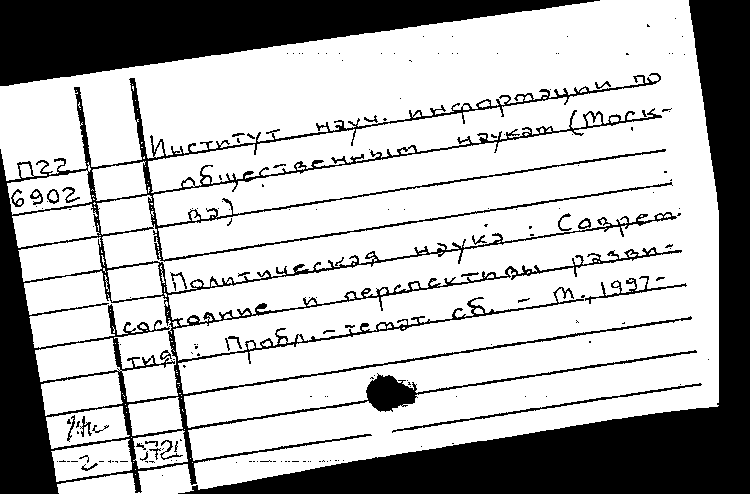 Институт науч. информации по
П22 общественным наукам (Моск-
6902 ва)
Политическая наука : Соврем.
состояние и перспективы разви-
тия : Пробл.-темат. сб. - М., 1997-
2 3721